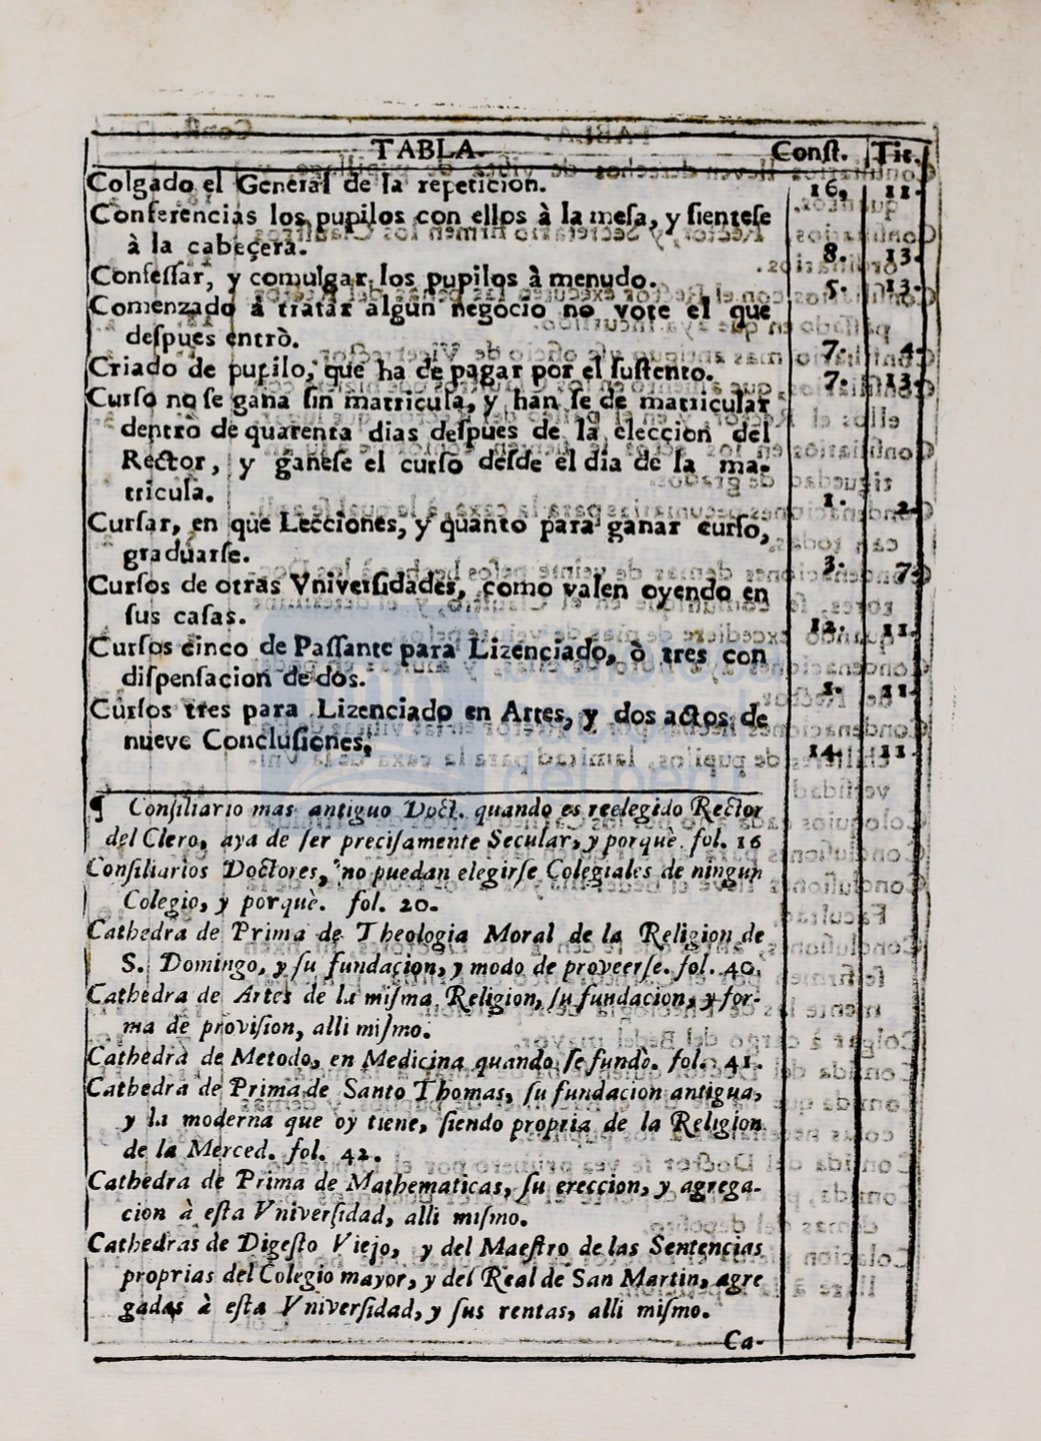 TABLA. Conſt. Tit.
Colgado el General de la repeticion. 16. 11.
Conferencias los pupilos con ellos à la meſa, y ſienteſe
à la cabeçera. 8. 13.
Confeſſar, y comulgar los pupilos à menudo. 5. 13.
Comenzado à tratar algun negocio no vote el que
deſpues entrò. 7. 4.
Criado de pupilo, que ha de pagar por el ſuſtento. 7. 13.
Curſo no ſe gana ſin matricula, y han ſe de matricular
dentro de quarenta dias deſpues de la eleccion del
Rector, y ganeſe el curſo deſde el dia de la ma-
tricula. 1. 2.
Curſar, en què Lecciones, y quanto para ganar curſo,
graduarſe. 3. 7.
Curſos de otras Vniverſidades, como valen oyendo en
ſus caſas. 12. 11.
Curſos cinco de Paſſante para Lizenciado, ò tres con
diſpenſacion de dos. 1. 11.
Curſos tres para Lizenciado en Artes, y dos actos de
nueve Concluſiones. 14. 11.
¶ Conſiliario mas antiguo Doct. quando es reelegido Rector
del Clero, aya de ſer preciſamente Secular, y porquè. fol. 16
Conſiliarios Doctores, no puedan elegirſe Colegiales de ningun
Colegio, y porquè. fol. 20.
Cathedra de Prima de Theologia Moral de la Religion de
S. Domingo, y ſu fundacion, y modo de proveerſe. fol. 40.
Cathedra de Artes de la miſma Religion, ſu fundacion, y for-
ma de proviſion, alli miſmo.
Cathedra de Metodo, en Medicina quando ſe fundò. fol. 41.
Cathedra de Prima de Santo Thomas, ſu fundacion antigua,
y la moderna que oy tiene, ſiendo propria de la Religion
de la Merced. fol. 42.
Cathedra de Prima de Mathematicas, ſu ereccion, y agrega-
cion à eſta Vniverſidad, alli miſmo.
Cathedras de Digeſto Viejo, y del Maeſtro de las Sentencias
proprias del Colegio mayor, y del Real de San Martin, agre
gadas à eſta Vniverſidad, y ſus rentas, alli miſmo.
Ca-